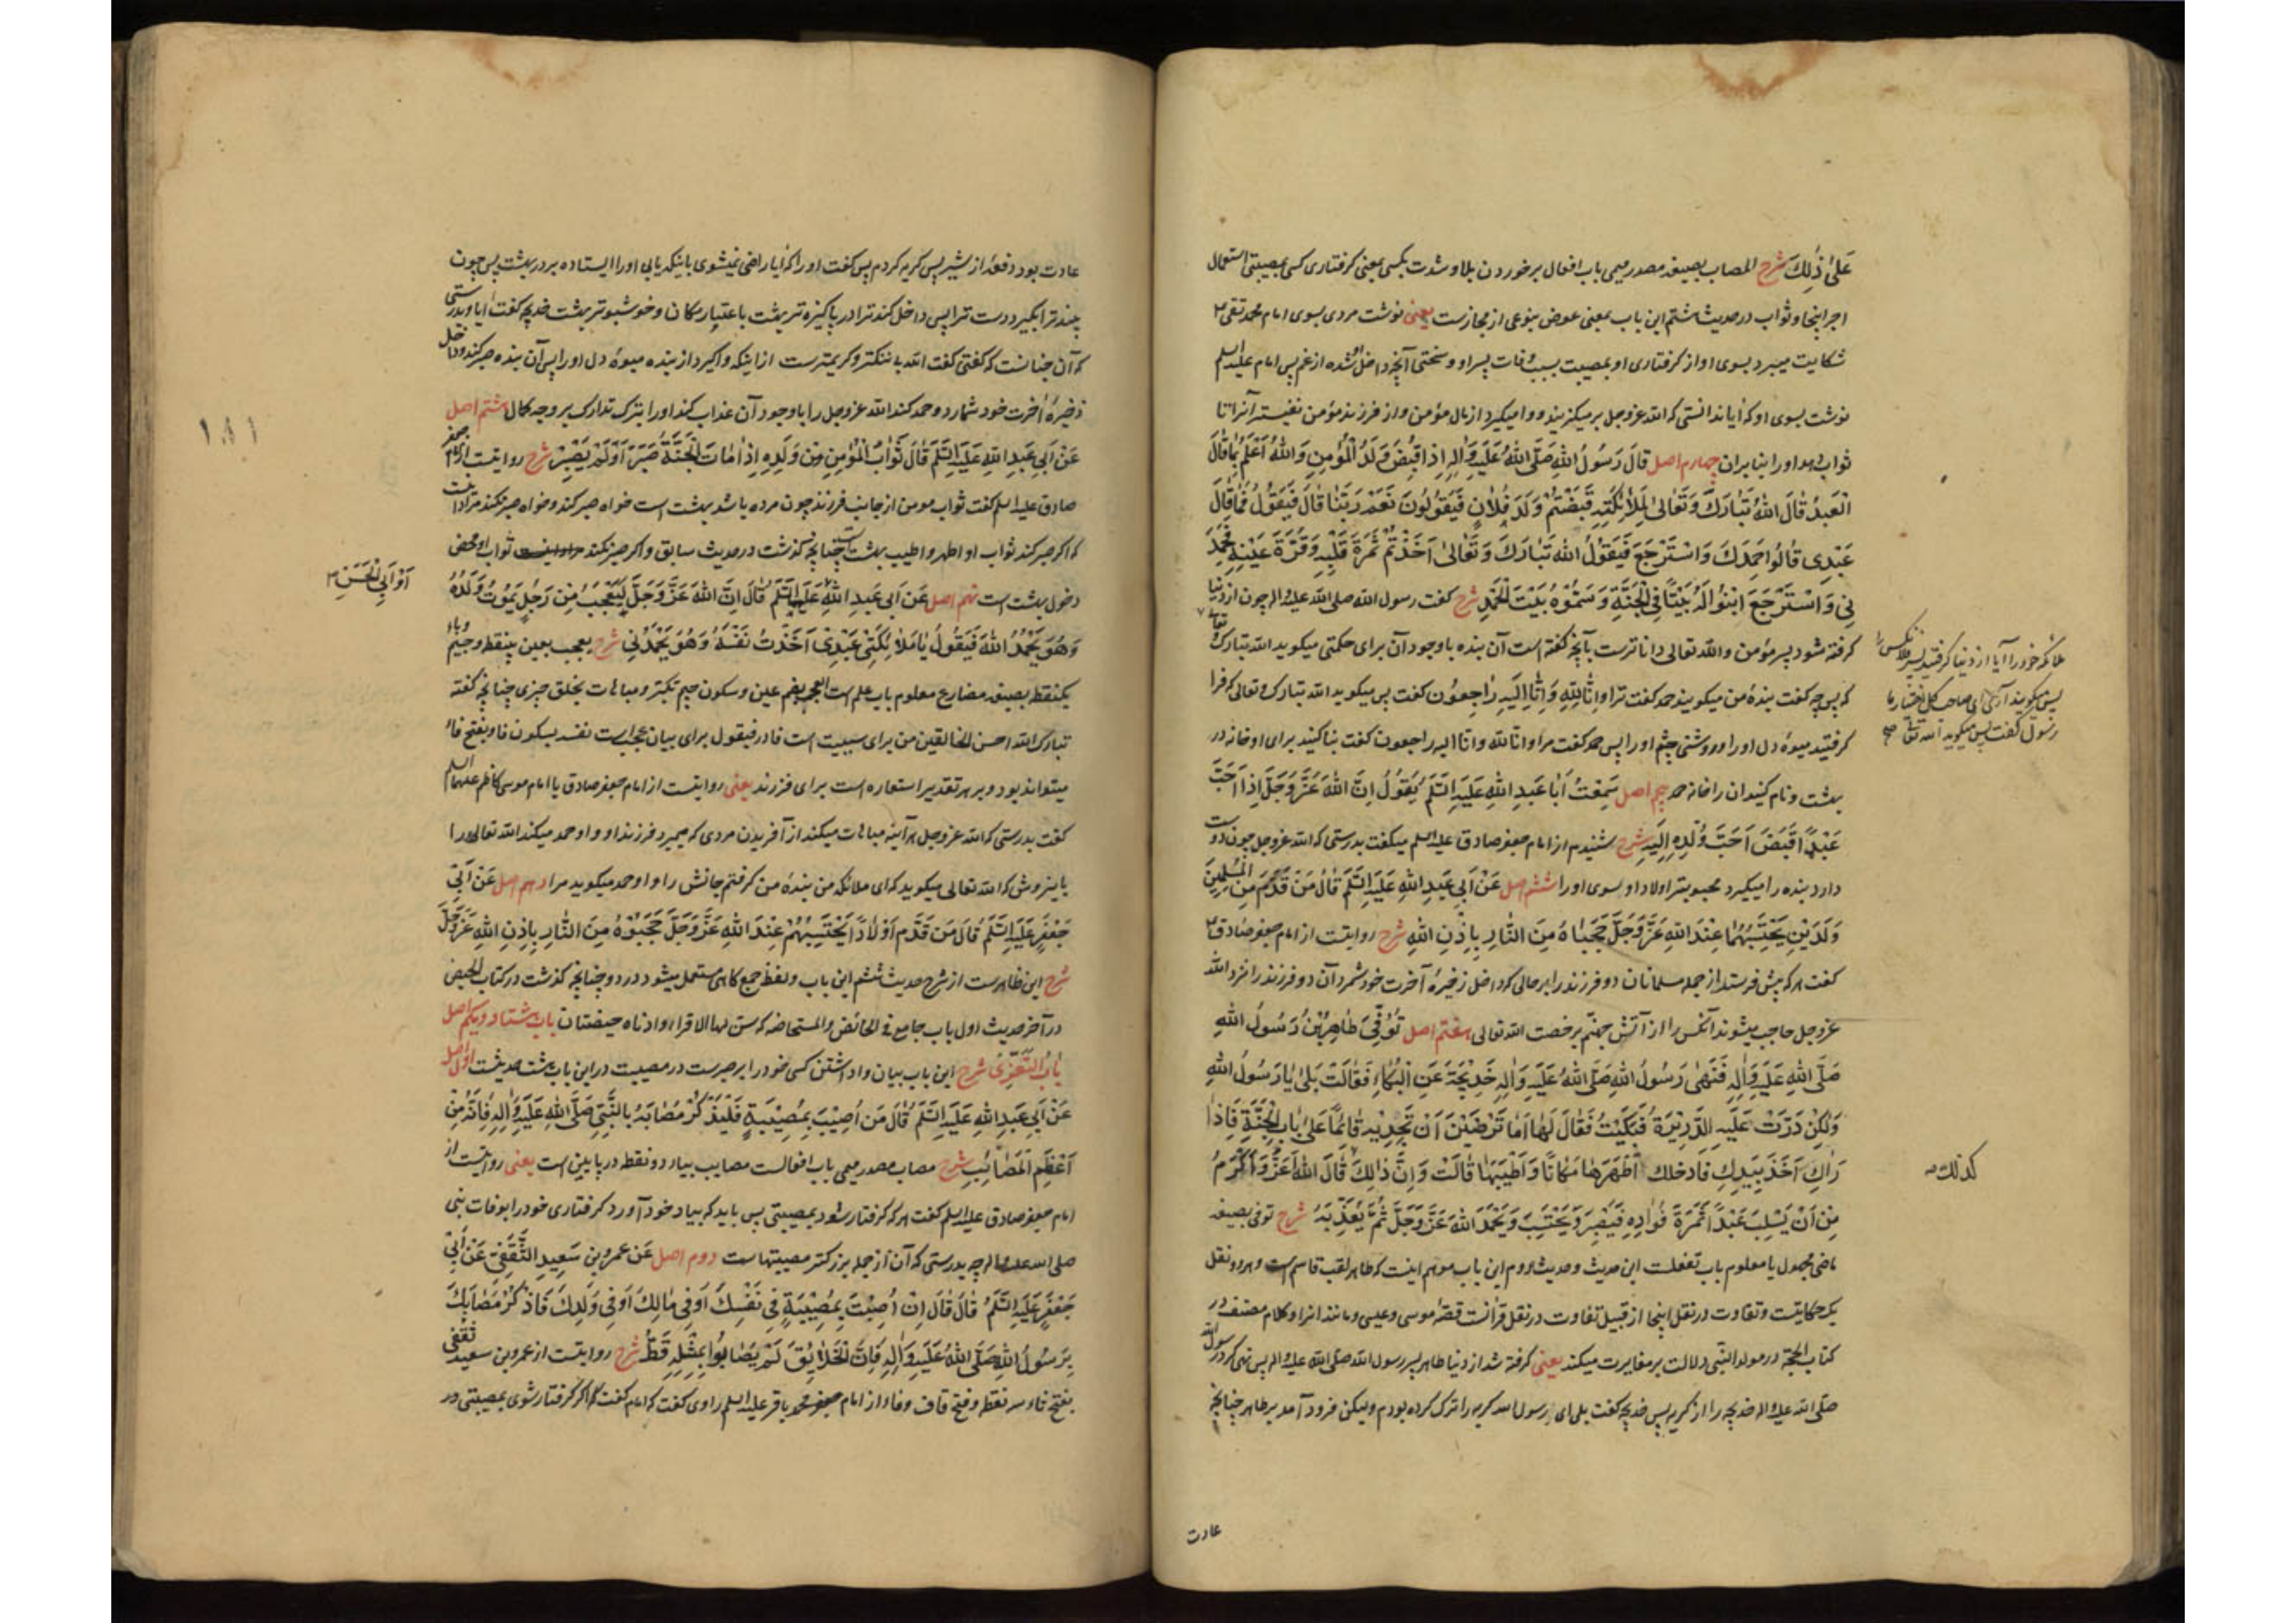 عَلىٰ ذٰلِكَ شرح المصاب بصیغه مصدر میمی باب افعال برخوردن بلا و شدت بکسی بمعنی گرفتاری کسی بمصیبتی استعمال
اجر اینجا و ثواب در حدیث هشتم این باب بمعنی عوض بنوعی از مجازست یعنی نوشت مردی بسوی امام محمد تقی ع
شکایت میبرد بسوی او از گرفتاری او بمصیبت بسبب وفات پسر او و سختی آنچه داخل او شده از غم پس امام علیه السلم
نوشت بسوی او که آیا ندانستی که الله عز و جل بر میگزیند و وا میگیرد از مال مؤمن و از فرزند مؤمن نفیسته آنرا تا
ثواب دهد او را بنا بر ان چهارم اصل قَالَ رَسُولُ اللهِ صَلَّى اللهُ عَلَيْهِ وَاٰلِهِ اِذَا قُبِضَ وَلَدُ الْمُؤْمِنِ وَاللهُ اَعْلَمُ بِمَا قَالَ
الْعَبْدُ قَالَ اللهُ تَبَارَكَ وَتَعَالىٰ لِمَلاٰئِكَتِهِ قَبَضْتُمْ وَلَدَ فُلاٰنٍ فَيَقُولُونَ نَعَمْ رَبَّنَا قَالَ فَيَقُولُ فَمَا قَالَ
عَبْدِى قَالُوا حَمِدَكَ وَاسْتَرْجَعَ فَيَقُولُ اللهُ تَبَارَكَ وَتَعَالىٰ اَخَذْتُمْ ثَمَرَةَ قَلْبِهِ وَقُرَّةَ عَيْنِهِ فَحَمِدَ
نِى وَاسْتَرْجَعَ ابْنُوا لَهُ بَيْتًا فِى الْجَنَّةِ وَسَمُّوْهُ بَيْتَ الْحَمْدِ شرح گفت رسول الله صلی الله علیه و اله چون از دنیا
گرفته شود پسر مؤمن والله تعالی داناترست بآنچه گفته است آن بنده با وجود آن برای حکمتی میگوید الله تبارک و تعالی
که پس چه گفت بندهٔ من میگویند حمد گفت ترا و انا لِلّٰهِ وَاِنَّا اِلَيْهِ رَاجِعُون گفت پس میگوید الله تبارک و تعالی که فرا
گرفتید میوهٔ دل او را و روشنی چشم او را پس حمد گفت مرا و انا لله و انا الیه راجعون گفت بنا کنید برای او خانه در
بهشت و نام کنید ان را خانه حمد پنجم اصل سَمِعْتُ اَبَا عَبْدِ اللهِ عَلَيْهِ السَّلَمُ يَقُولُ اِنَّ اللهَ عَزَّ وَجَلَّ اِذَا اَحَبَّ
عَبْدًا قَبَضَ اَحَبَّ وُلْدِهِ اِلَيْهِ شرح شنیدم از امام جعفر صادق علیه السلم میگفت بدرستی که الله عز و جل چون دوست
دارد بنده را میگیرد محبوبتر اولاد او بسوی او را ششم اصل عَنْ اَبِى عَبْدِ اللهِ عَلَيْهِ السَّلَمُ قَالَ مَنْ قَدَّمَ مِنَ الْمُسْلِمِينَ
وَلَدَيْنِ يَحْتَسِبُهُمَا عِنْدَ اللهِ عَزَّ وَجَلَّ حَجَبَاهُ مِنَ النَّارِ بِاِذْنِ اللهِ شرح روایتست از امام جعفر صادق ع
گفت هر که پیش فرستد از جمله مسلمانان دو فرزند را بر حالی که داخل ذخیرهٔ آخرت خود شمرد آن دو فرزند را نزد الله
عز و جل حاجب میشوند آنکس را از آتش جهنم برخصت الله تعالی هفتم اصل تُوُفِّىَ طَاهِرُ بْنُ رَسُولِ اللهِ
صَلَّى اللهِ عَلَيْهِ وَاٰلِهِ فَنَهٰى رَسُولُ اللهِ صَلَّى اللهُ عَلَيْهِ وَاٰلِهِ خَدِيْجَةَ عَنِ الْبُكَاءِ فَقَالَتْ بَلىٰ يَا رَسُولَ اللهِ
وَلٰكِنْ دَرَّتْ عَلَيْهِ الدُّرَيْرَةُ فَبَكَيْتُ فَقَالَ لَهَا اَمَا تَرْضَيْنَ اَنْ تَجِدِيْهِ قَائِمًا عَلىٰ بَابِ الْجَنَّةِ فَاِذَا
رَاٰكِ اَخَذَ بِيَدِكِ فَادخلك اَطْهَرَهَا مَكَانًا وَاَطْيَبَهَا قَالَتْ وَاِنَّ ذٰلِكَ قَالَ اللهُ اَعَزُّ وَاَكْرَمُ
مِنْ اَنْ يَسْلُبَ عَبْدًا ثَمَرَةَ فُؤَادِهِ فَيَصْبِرَ وَيَحْتَسِبَ وَيَحْمَدَ اللهَ عَزَّ وَجَلَّ ثُمَّ يُعَذِّبَهُ شرح توفی بصیغه
ماضی مجهول یا معلوم باب تفعلست این حدیث و حدیث دوم این باب موهم اینست که طاهر لقب قاسم است و هر دو نقل
یک حکایتست و تفاوت در نقل اینجا از قبیل تفاوت در نقل قرانست قصهٔ موسی و عیسی و مانند انرا و کلام مصنف در
کتاب الحجة در مولد النبی دلالت بر مغایرت میکند یعنی گرفته شد از دنیا طاهر پسر رسول الله صلی الله علیه و اله پس نهی کرد رسول الله
صلی الله علیه و اله خدیجه را از گریه پس خدیجه گفت بلی ای رسول الله گریه را ترک کرده بودم ولیکن فرود آمد بر طاهر چنانچه
عادت
ملائکه خود را آیا از دنیا گرفتید پسر فلانکس را
پس میگویند آری ای صاحب کل اختیار ما
رسول گفت پس میگوید الله تعالی صح
كذلك
عادت بود دفعهٔ از شیر پس گریه کردم پس گفت او را که آیا راضی نمیشوی باینکه یابی او را ایستاده بر در بهشت پس چون
بیند ترا بگیرد دست ترا پس داخل کند ترا در پاکیزه تر بهشت باعتبار مکان و خوشبوتر بهشت خدیجه گفت آیا و بدرستی
که آن چنانست که گفتی گفت الله باننگتر و کریمترست از اینکه واگیرد از بنده میوهٔ دل او را پس آن بنده صبر کند و داخل
ذخیرهٔ آخرت خود شمارد و حمد کند الله عز و جل را با وجود آن عذاب کند او را بترک تدارک بر وجه کمال هشتم اصل
عَنْ اَبِى عَبْدِ اللهِ عَلَيْهِ السَّلَمُ قَالَ ثَوَابُ الْمُؤْمِنِ مِنْ وَلَدِهِ اِذَا مَاتَ الْجَنَّةُ صَبَرَ اَوْ لَمْ يَصْبِرْ شرح روایتست از امام جعفر
صادق علیه السلم گفت ثواب مومن از جانب فرزند چون مرده باشد بهشت است خواه صبر کند و خواه صبر نکند مراد اینست
که اگر صبر کند ثواب او اطهر و اطیب بهشت است چنانچه گذشت در حدیث سابق و اگر صبر نکند ثواب او محض
دخول بهشت است نهم اصل عَنْ اَبِى عَبْدِ اللهِ عَلَيْهِ السَّلَمُ قَالَ اِنَّ اللهَ عَزَّ وَجَلَّ لَيَعْجَبُ مِنْ رَجُلٍ يَمُوْتُ وَلَدُهُ
وَهُوَ يَحْمَدُ اللهَ فَيَقُولُ يَا مَلاٰئِكَتِى عَبْدِى اَخَذْتُ نَفْسَهُ وَهُوَ يَحْمَدُنِى شرح یعجب بعین بینقطه و جیم و باء
یکنقطه بصیغه مضارع معلوم باب علم است العجب بضم عین و سکون جیم تکبر و مباهات بخلق چیزی چنانچه گفته
تبارک الله احسن الخالقین من برای سببیت است فا در فیقول برای بیان عجبست نفسه بسکون فا و بفتح فا
میتواند بود و بر هر تقدیر استعاره است برای فرزند یعنی روایتست از امام جعفر صادق یا امام موسی کاظم علیهما السلم
گفت بدرستی که الله عز و جل هر آینه مباهات میکند از آفریدن مردی که میمیرد فرزند او و او حمد میکند الله تعالی را
باینروش که الله تعالی میگوید که ای ملائکه من بندهٔ من گرفتم جانش را و او حمد میگوید مرا دهم اصل عَنْ اَبِى
جَعْفَرٍ عَلَيْهِ السَّلَمُ قَالَ مَنْ قَدَّمَ اَوْلاَدًا يَحْتَسِبُهُمْ عِنْدَ اللهِ عَزَّ وَجَلَّ حَجَبُوْهُ مِنَ النَّارِ بِاِذْنِ اللهِ عَزَّ وَجَلَّ
شرح این ظاهرست از شرح حدیث ششم این باب و لفظ جمع گاهی مستعمل میشود در دو چنانچه گذشت در کتاب الحیض
در آخر حدیث اول باب جامع فی الحائض و المستحاضه که سن لها الاقراء و ادناه حیضتان باب هشتاد و یکم اصل
بَابُ التَّعَزِّى شرح این باب بیان واداشتن کسی خود را بر صبرست در مصیبت در این باب هشت حدیثست اول اصل
عَنْ اَبِى عَبْدِ اللهِ عَلَيْهِ السَّلَمُ قَالَ مَنْ اُصِيْبَ بِمُصِيْبَةٍ فَلْيَذْكُرْ مُصَابَهُ بِالنَّبِىِّ صَلَّى اللهِ عَلَيْهِ وَاٰلِهِ فَاِنَّهُ مِنْ
اَعْظَمِ الْمَصَائِبِ شرح مصاب مصدر میمی باب افعالست مصایب بیاء دو نقطه در پایین است یعنی روایتست از
امام جعفر صادق علیه السلم گفت هر که گرفتار شود بمصیبتی پس باید که بیاد خود آورد گرفتاری خود را بوفات نبی
صلی الله علیه و اله چه بدرستی که آن از جمله بزرگتر مصیبتهاست دوم اصل عَنْ عمرو بن سَعِيدٍ الثَّقَفِىِّ عَنْ اَبِى
جَعْفَرٍ عَلَيْهِ السَّلَمُ قَالَ قَالَ اِنْ اُصِبْتَ بِمُصِيْبَةٍ فِى نَفْسِكَ اَوْ فِى مَالِكَ اَوْ فِى وَلَدِكَ فَاذْكُرْ مُصَابَكَ
بِرَسُولِ اللهِ صَلَّى اللهُ عَلَيْهِ وَاٰلِهِ فَاِنَّ الْخَلاَيِقَ لَمْ يُصَابُوا بِمِثْلِهِ قَطُّ شرح روایتست از عمرو بن سعید ثقفی
بفتح ثاء سه نقطه و فتح قاف و فاء از امام محمد باقر علیه السلم راوی گفت که امام گفت که اگر گرفتار شوی بمصیبتی در
اَوْ اَبِى الْحَسَنِ ع
١٨١